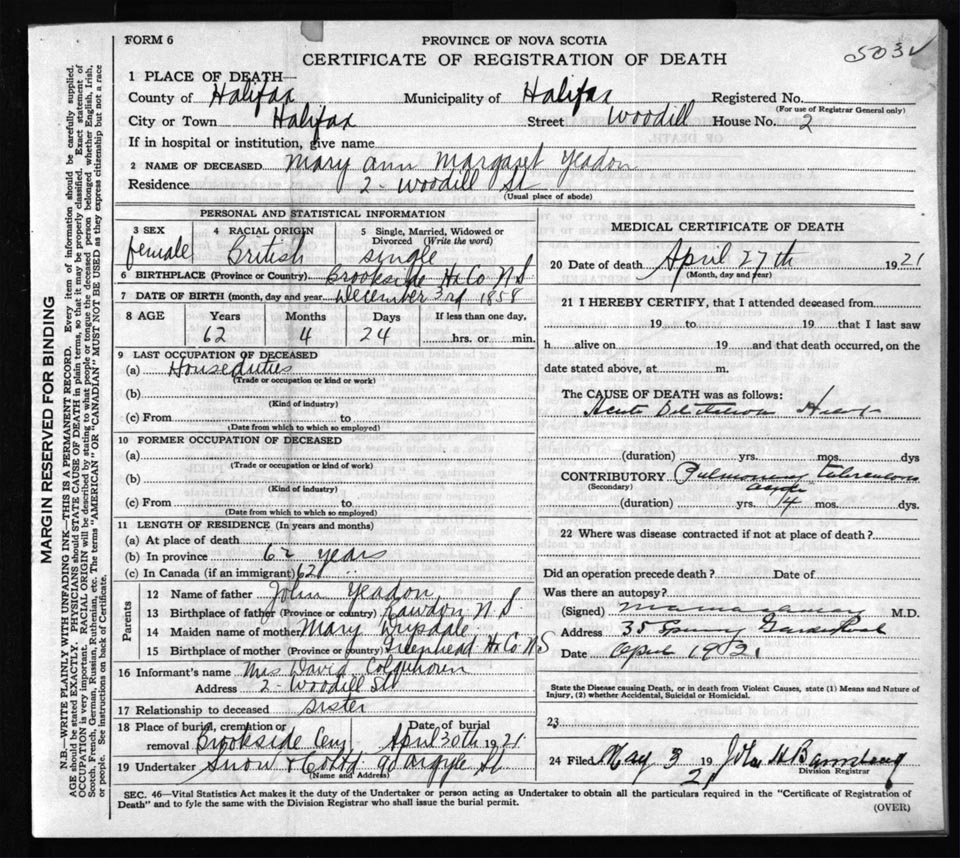 FORM 6
PROVINCE OF NOVA SCOTIA
CERTIFICATE OF REGISTRATION OF DEATH
5032
1 PLACE OF DEATH—
County of Halifax Municipality of Halifax Registered No.
(For use of Registrar General only)
City or Town Halifax Street Woodill House No. 2
If in hospital or institution, give name
2 NAME OF DECEASED Mary Ann Margaret Yeadon
Residence 2 - Woodill St
(Usual place of abode)
PERSONAL AND STATISTICAL INFORMATION
3 SEX 4 RACIAL ORIGIN 5 Single, Married, Widowed or Divorced (Write the word)
female British single
6 BIRTHPLACE (Province or Country) Brookside Hx Co N S
7 DATE OF BIRTH (month, day and year December 3rd 1858
8 AGE Years Months Days If less than one day,
62 4 24 hrs. or min.
9 LAST OCCUPATION OF DECEASED
(a) House duties
(Trade or occupation or kind or work)
(b)
(Kind of industry)
(c) From to
(Date from which to which so employed)
10 FORMER OCCUPATION OF DECEASED
(a)
(Trade or occupation or kind or work)
(b)
(Kind of industry)
(c) From to
(Date from which to which so employed)
11 LENGTH OF RESIDENCE (In years and months)
(a) At place of death
(b) In province 62 years
(c) In Canada (if an immigrant) 62 "
Parents
12 Name of father John Yeadon
13 Birthplace of father (Province or country) Rawdon N S
14 Maiden name of mother Mary Drysdale
15 Birthplace of mother (Province or country) Greenhead Hx Co NS
16 Informant's name Mrs David Colquhoun
Address 2 - Woodill St
17 Relationship to deceased sister
18 Place of burial, cremation or removal Brookside Cem Date of burial April 30th 1921
19 Undertaker Snow & Co Ltd 90 Argyle St
(Name and Address)
MEDICAL CERTIFICATE OF DEATH
20 Date of death April 27th 1921
(Month, day and year)
21 I HEREBY CERTIFY, that I attended deceased from
19 to 19 that I last saw
h alive on 19 and that death occurred, on the
date stated above, at m.
The CAUSE OF DEATH was as follows:
Acute Dilatation Heart
(duration) yrs. mos. dys
CONTRIBUTORY Pulmonary Tuberculosis
(Secondary)
(duration) yrs. 4 mos. dys.
22 Where was disease contracted if not at place of death?
Did an operation precede death? Date of
Was there an autopsy?
(Signed) M.D.
Address 35 Spring Garden Road
Date April 1921
State the Disease causing Death, or in death from Violent Causes, state (1) Means and Nature of
Injury, (2) whether Accidental, Suicidal or Homicidal.
23
24 Filed May 3 1921 Division Registrar
SEC. 46—Vital Statistics Act makes it the duty of the Undertaker or person acting as Undertaker to obtain all the particulars required in the "Certificate of Registration of
Death" and to fyle the same with the Division Registrar who shall issue the burial permit.
(OVER)
MARGIN RESERVED FOR BINDING
N.B.—WRITE PLAINLY WITH UNFADING INK—THIS IS A PERMANENT RECORD. Every item of information should be carefully supplied.
AGE should be stated EXACTLY. PHYSICIANS should STATE CAUSE OF DEATH in plain terms, so that it may be properly classified. Exact statement of
OCCUPATION is very important. RACIAL ORIGIN will be described by stating to what people or tongue the deceased person belonged whether English, Irish,
Scotch, French, German, Russian, Ruthenian, etc. The terms "AMERICAN" OR "CANADIAN" MUST NOT BE USED as they express citizenship but not a race
or people. See instructions on back of Certificate.